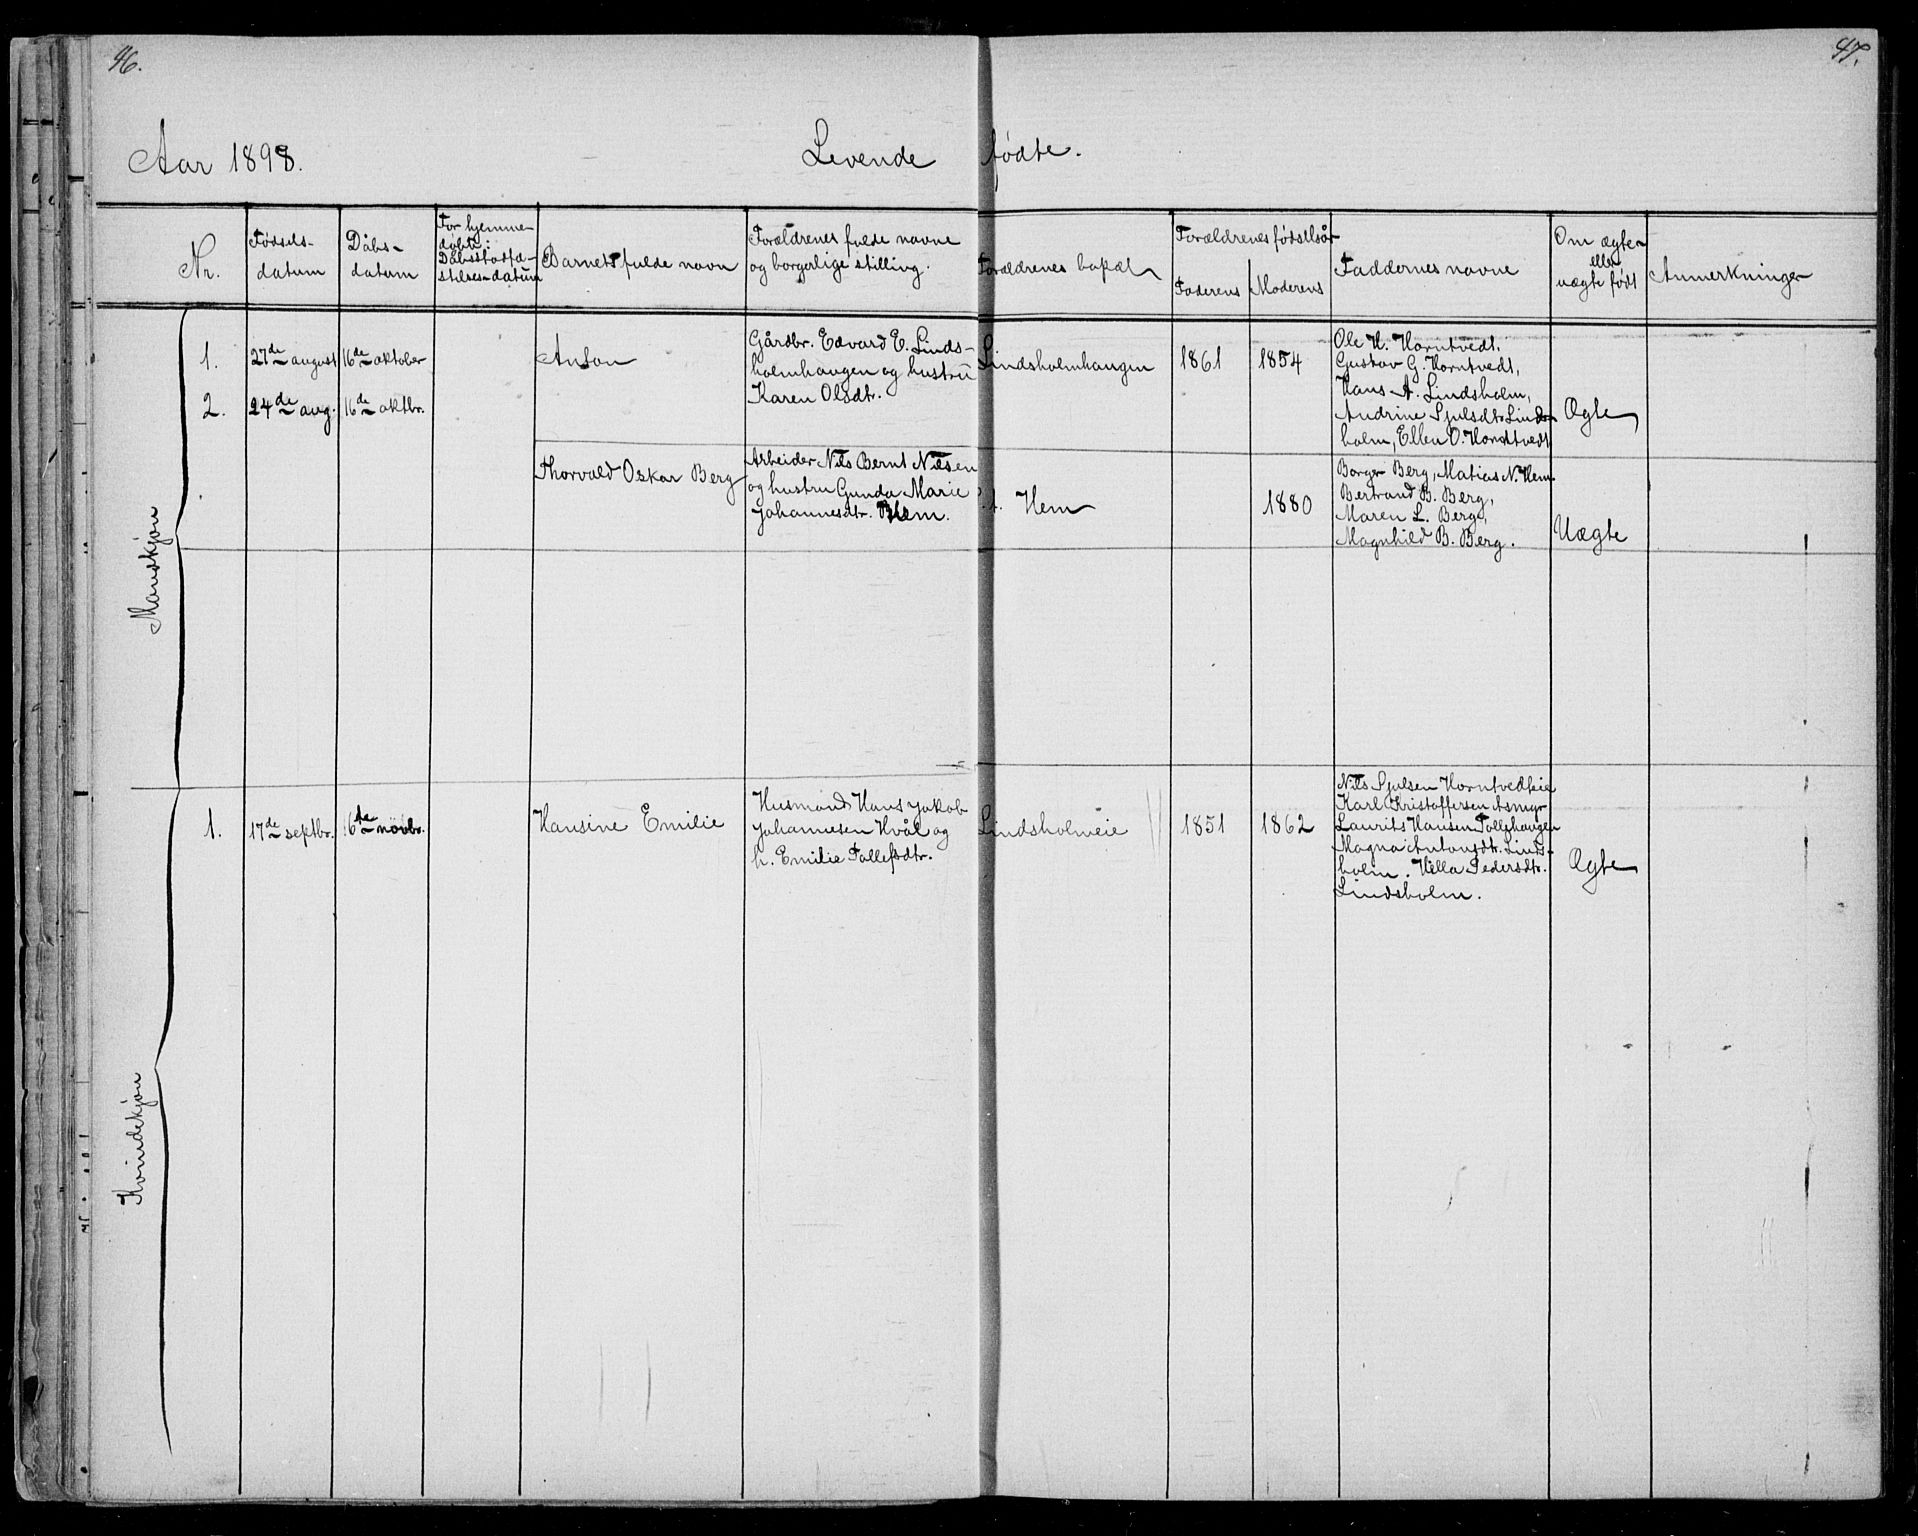 46.
47.
Aar 1898.
Levende fødte.
Nr.
Fødsels-
datum
Dåbs-
datum
For hjemme-
døbte:
Dåbsstadfæ-
stelses-datum
Barnets fulde navn
Forældrenes fulde navne
og borgerlige stilling.
Forældrenes bopæl
Forældrenes fødselsår
Faderens
Moderens
Faddernes navne
Om ægte
eller
uægte født
Anmerkninger
Mandskjøn
1.
27de august
16de oktober
Anton
Gårdbr. Edvard E. Linds-
holmhaugen og hustru
Karen Olsdtr.
Lindsholmhaugen
1861
1854
Ole H. Horntvedt,
Gustav G. Horntvedt,
Hans A. Lindsholm,
Andrine Sjulsdtr Linds-
holm, Ellen O. Horntvedt
Ægte
2.
24de aug.
16de oktbr.
Thorvald Oskar Berg
Arbeider Nils Bernt Nilsen
og hustru Gunda Marie
Johannesdtr. Hem.
.t. Hem
1880
Borger Berg, Matias N. Hem
Bertrand B. Berg,
Maren L. Berg,
Magnhild B. Berg.
Uægte
Kvindekjøn
1.
17de septbr.
16de novbr.
Hansine Emilie
Husmand Hans Jakob
Johannesen Hvål og
h. Emilie Tollefsdtr.
Lindsholmeie
1851
1862
Nils Sjulsen Horntvedteie
Karl Kristoffersen Asmyr
Laurits Hansen Tollfshaugen
Magna Antonsdtr. Linds-
holm. Hella Pedersdtr.
Lindsholm.
Ægte